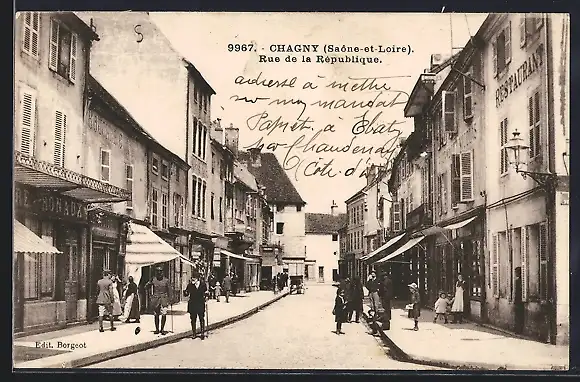 9967. - CHAGNY (Saône-et-Loire).
Rue de la République.
adresse à mettre
sur mon mandat
Papet à Ebaty
par Chaudenay
(Côte d'or)
RESTAURANT
Edit. Borgeot